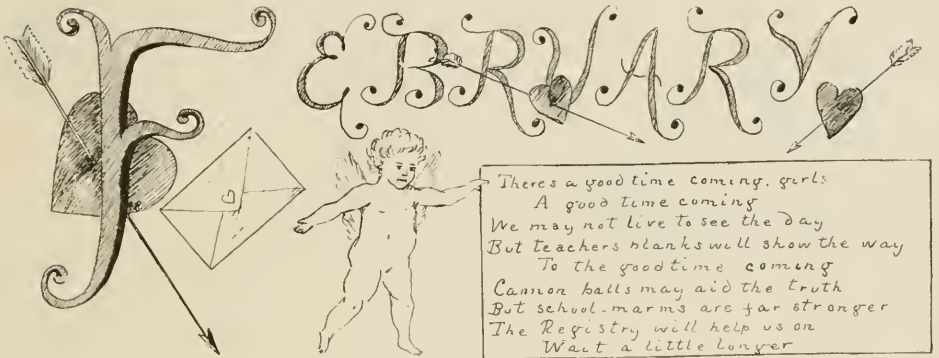 FEBRUARY
Theres a good time coming, girls
A good time coming
We may not live to see the day
But teachers blanks will show the way
To the good time coming
Cannon balls may aid the truth
But school-marms are far stronger
The Registry will help us on
Wait a little longer